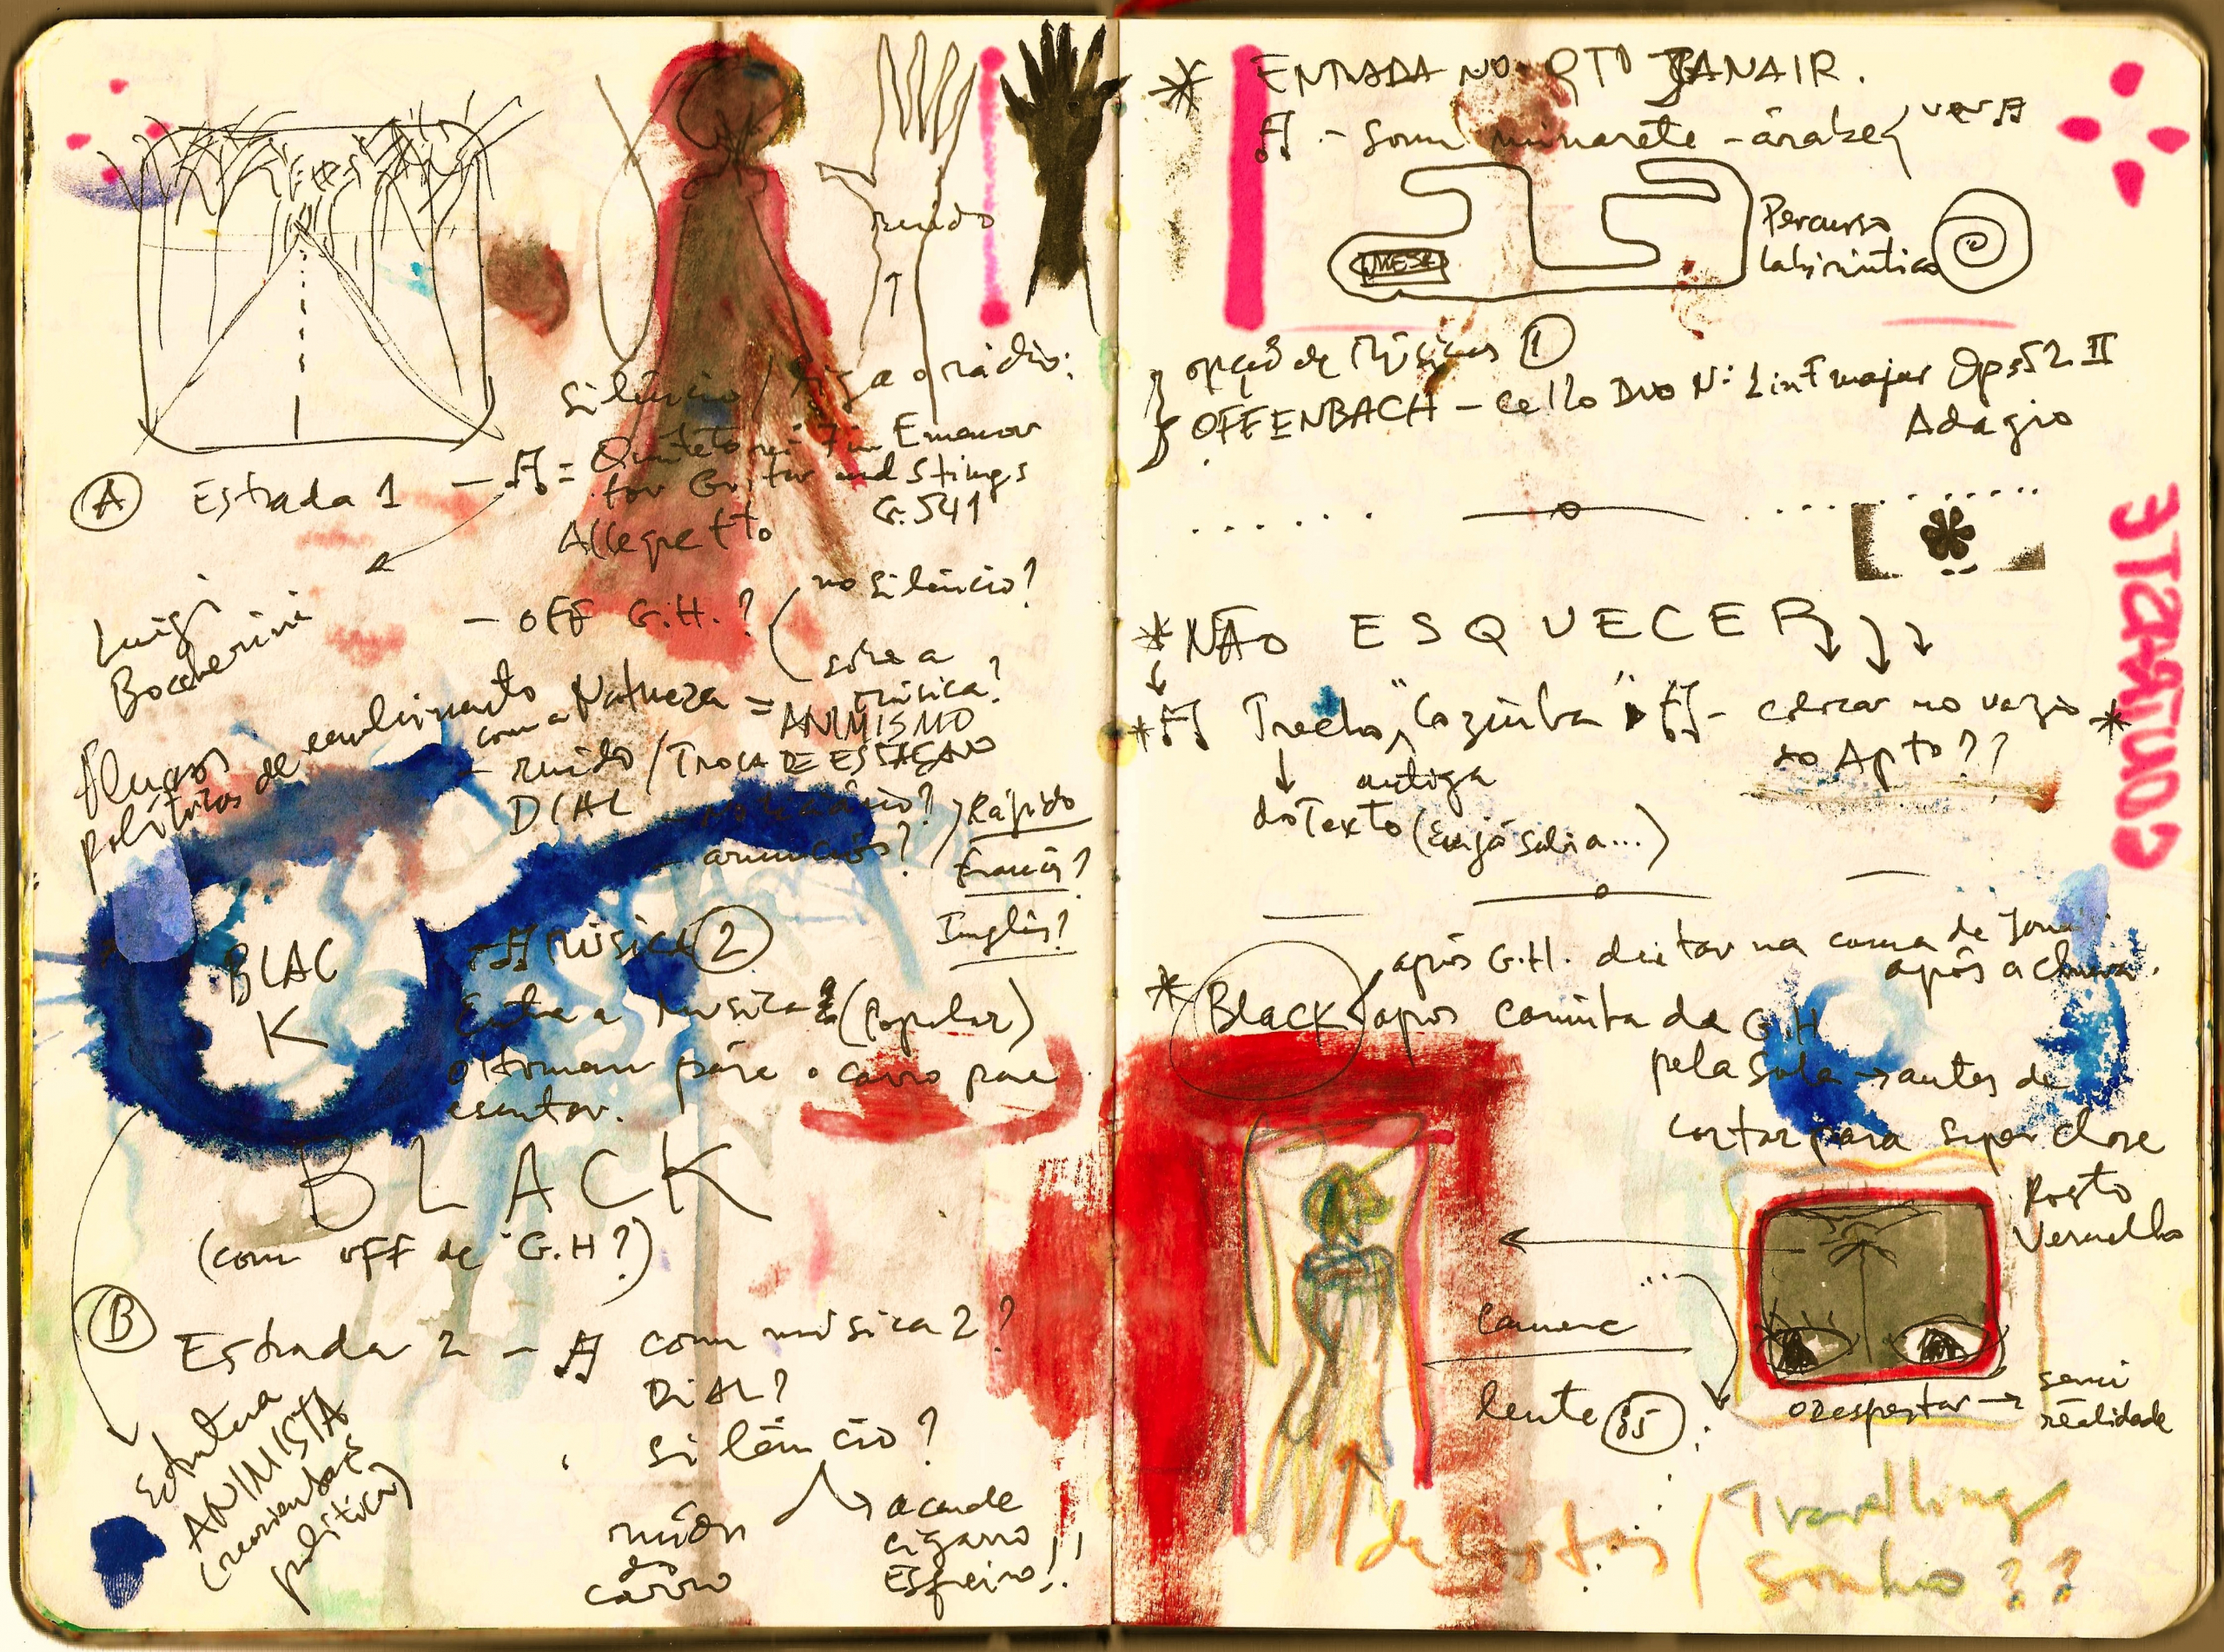 ruído
silêncio / liga o rádio:
(A) Estrada 1 — = Quinteto nº 7 in E menor
for Guitar and Strings
G. 541
Allegretto
Luigi
Boccherini
— OFF G.H.? ( no silêncio?
sobre a
música?
políticos de
com a Natureza = ANIMISMO
- ruído / TROCA DE ESTAÇÃO
DIAL
anúncios?
Rápido
Francês?
Inglês?
BLAC
K
MÚSICA (2)
Entra a Música 2 (popular)
o Homem pára o carro para
escutar.
BLACK
(com off de G.H?)
(B) Estrada 2 — com música 2?
DIAL?
silêncio?
ruído
do
carro
acende
cigarro
ANIMISTA
política)
* ENTRADA NO QTO JANAIR.
- som minarete - árabe
MESA
Percurso
labiríntico
opção de Músicas (1)
OFFENBACH — Cello Duo Nº 1 in F major Op. 52 II
Adagio
* NÃO ESQUECER
* Trecho "Cozinha" - colocar no vazio *
do Apto??
antiga
do Texto (Eu já sabia...)
ESTATUDO
* Black
após G.H. deitar na cama de
após a chuva.
após caminhada G.H
pela sala → antes de
cortar para super close
Rosto
Vermelho
camera
lente (35)
→ semi
realidade
de costas / Travelling
Sonho??